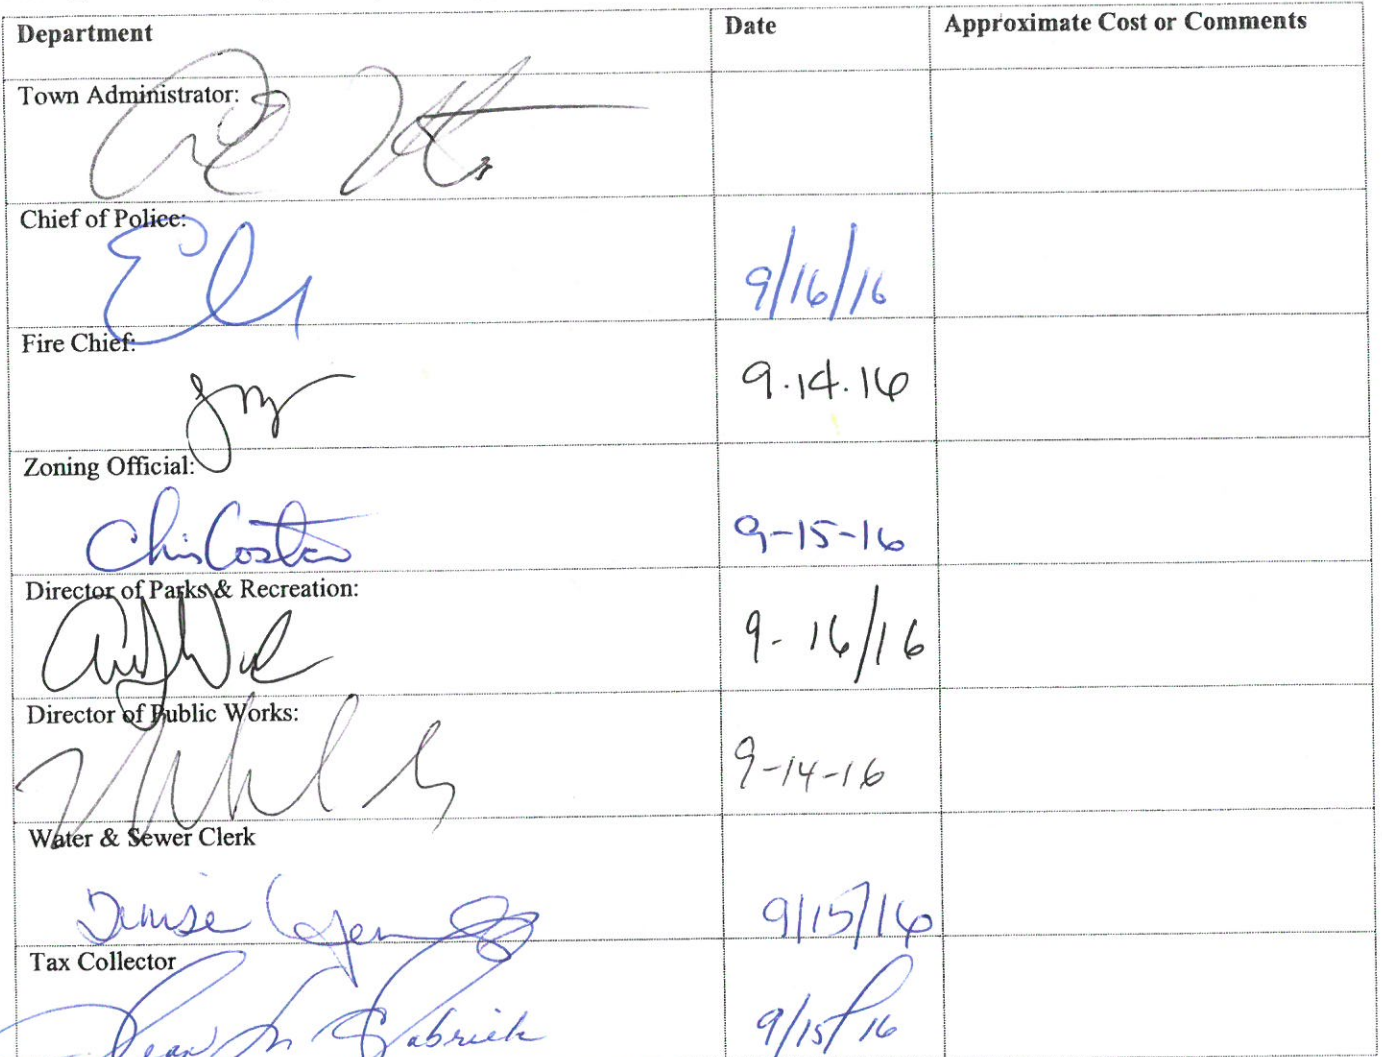 Department Date Approximate Cost or Comments
Town Administrator:
Chief of Police:
9/16/16
Fire Chief:
9.14.16
Zoning Official:
Chris Costa 9-15-16
Director of Parks & Recreation:
9-16/16
Director of Public Works:
9-14-16
Water & Sewer Clerk
Denise 9/15/16
Tax Collector
9/15/16